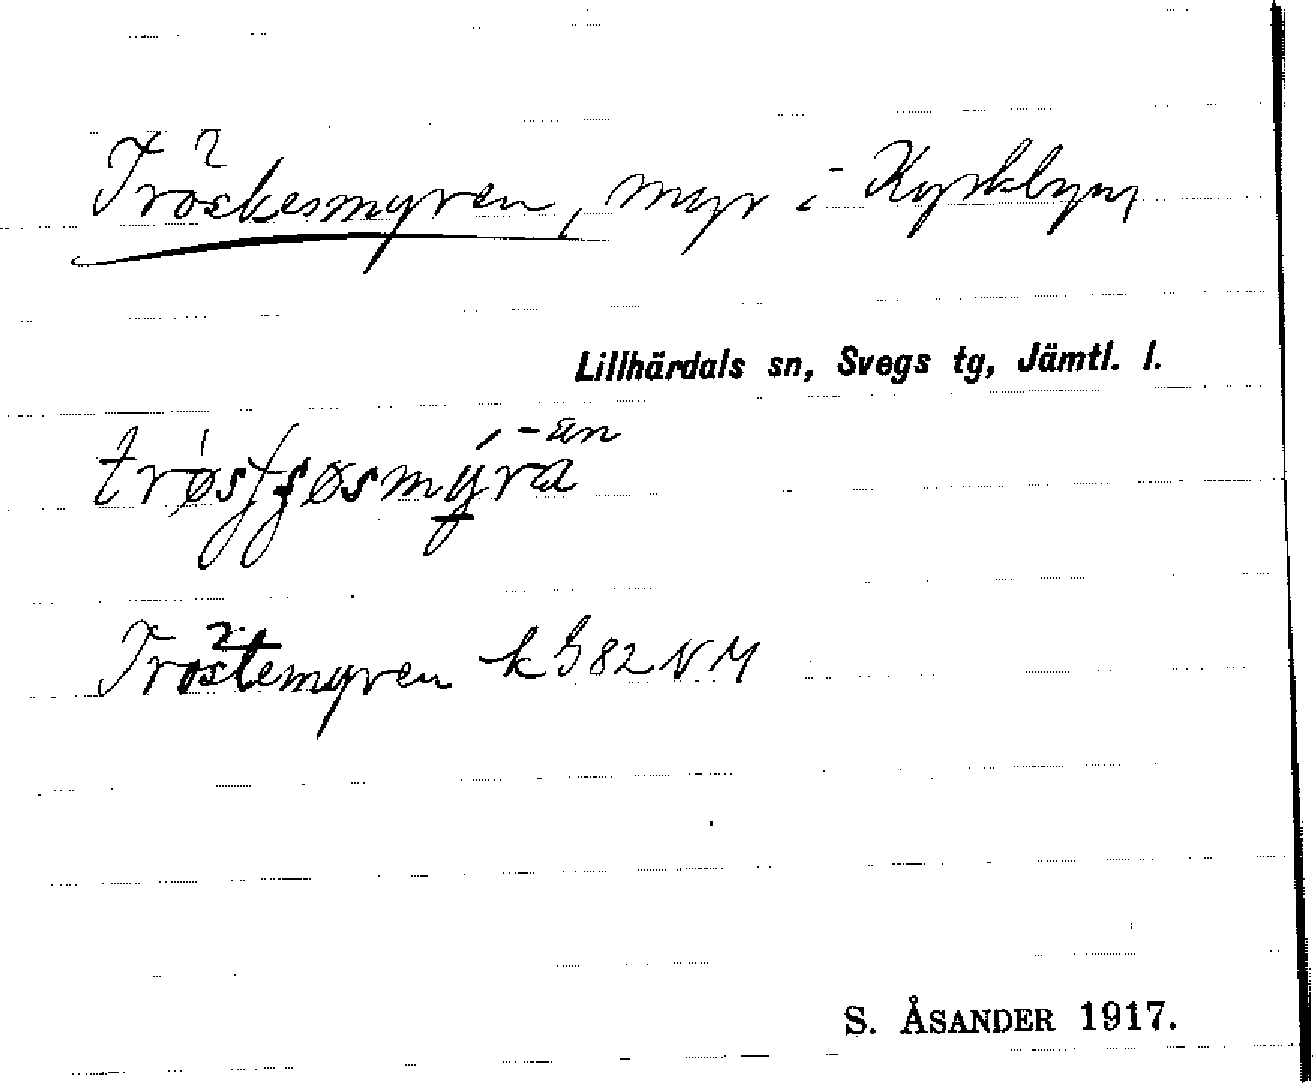 Tröskesmyren, myr i Kyrkbyn
?
Lillhärdals sn, Svegs tg, Jämtl. l.
-än
Tröstemyren k G 82 NM
S. ÅSANDER 1917.